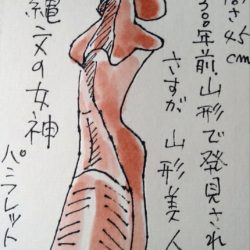 さ45cm
00年前山形で発見され
さすが 山形美人
縄文の女神
パンフレット